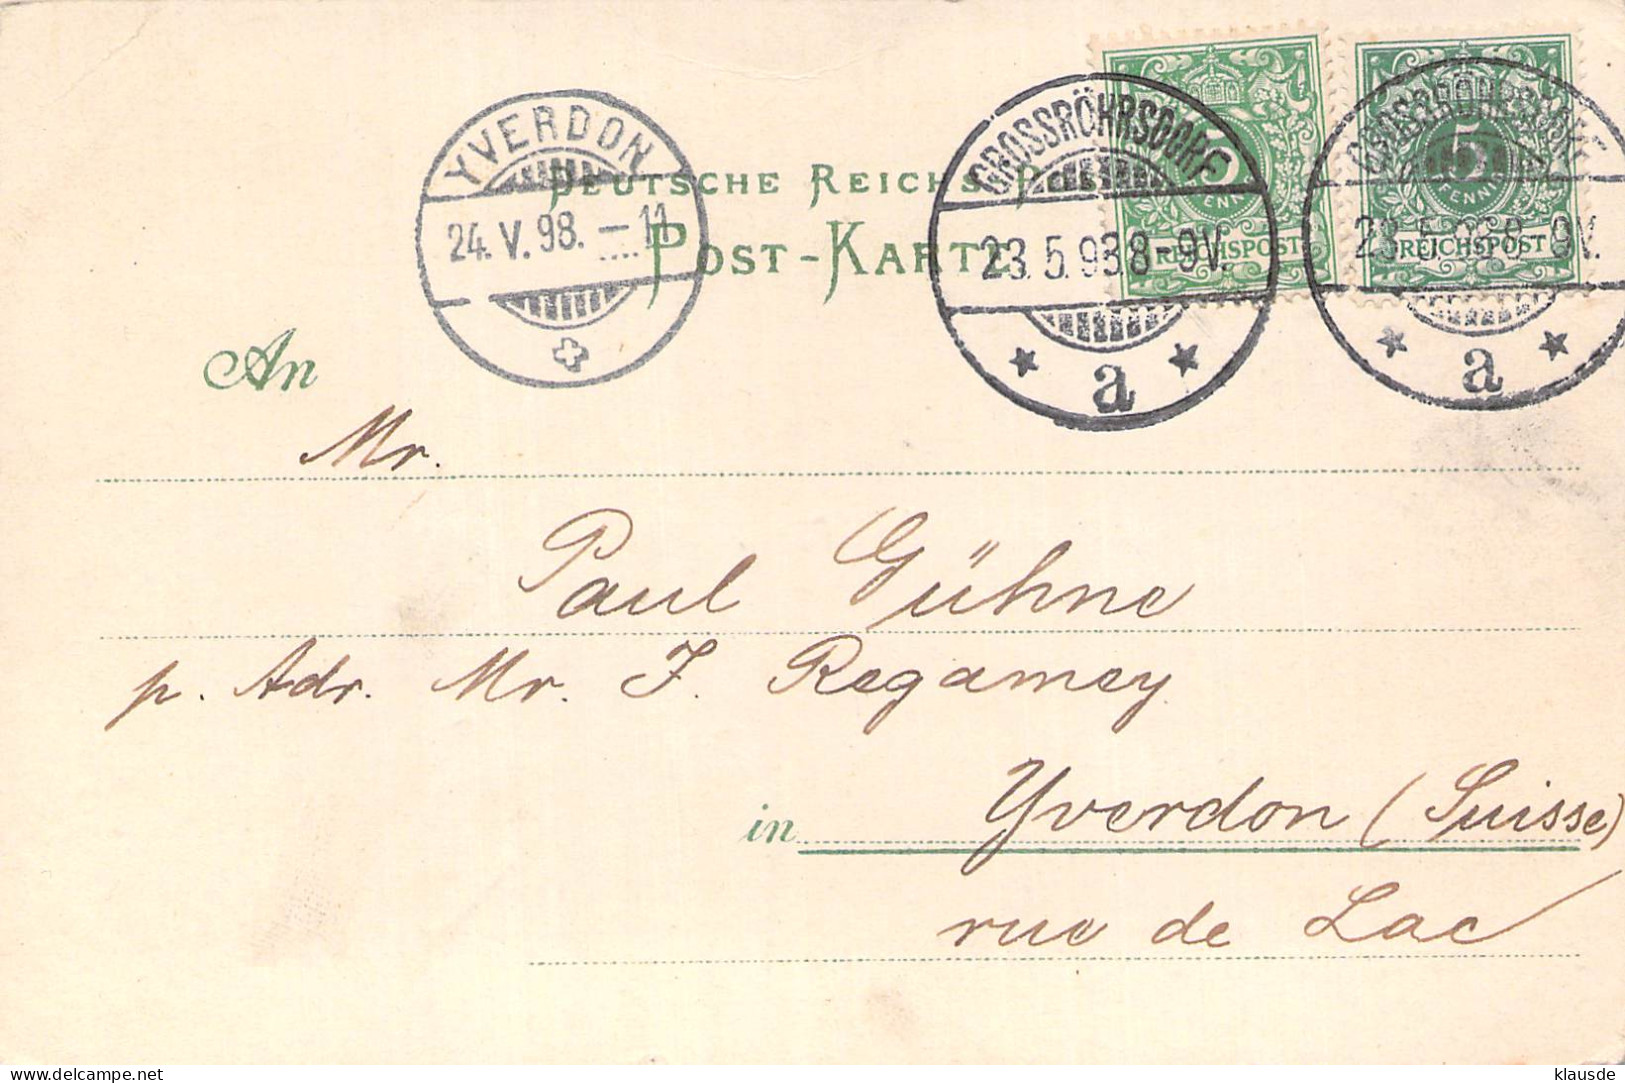 YVERDON
24. V. 98. - 11
DEUTSCHE REICHS
POST-KARTE
GROSSRÖHRSDORF
23.5.98 8-9V.
a
5
PFENNIG
REICHSPOST
GROSSRÖHRSDORF
23.5.98 8-9V.
a
5
PFENNIG
REICHSPOST
An
Mr.
Paul Gühne
p. Adr. Mr. J. Regamey
in Yverdon (Suisse)
rue de Lac
delcampe.net
klausde